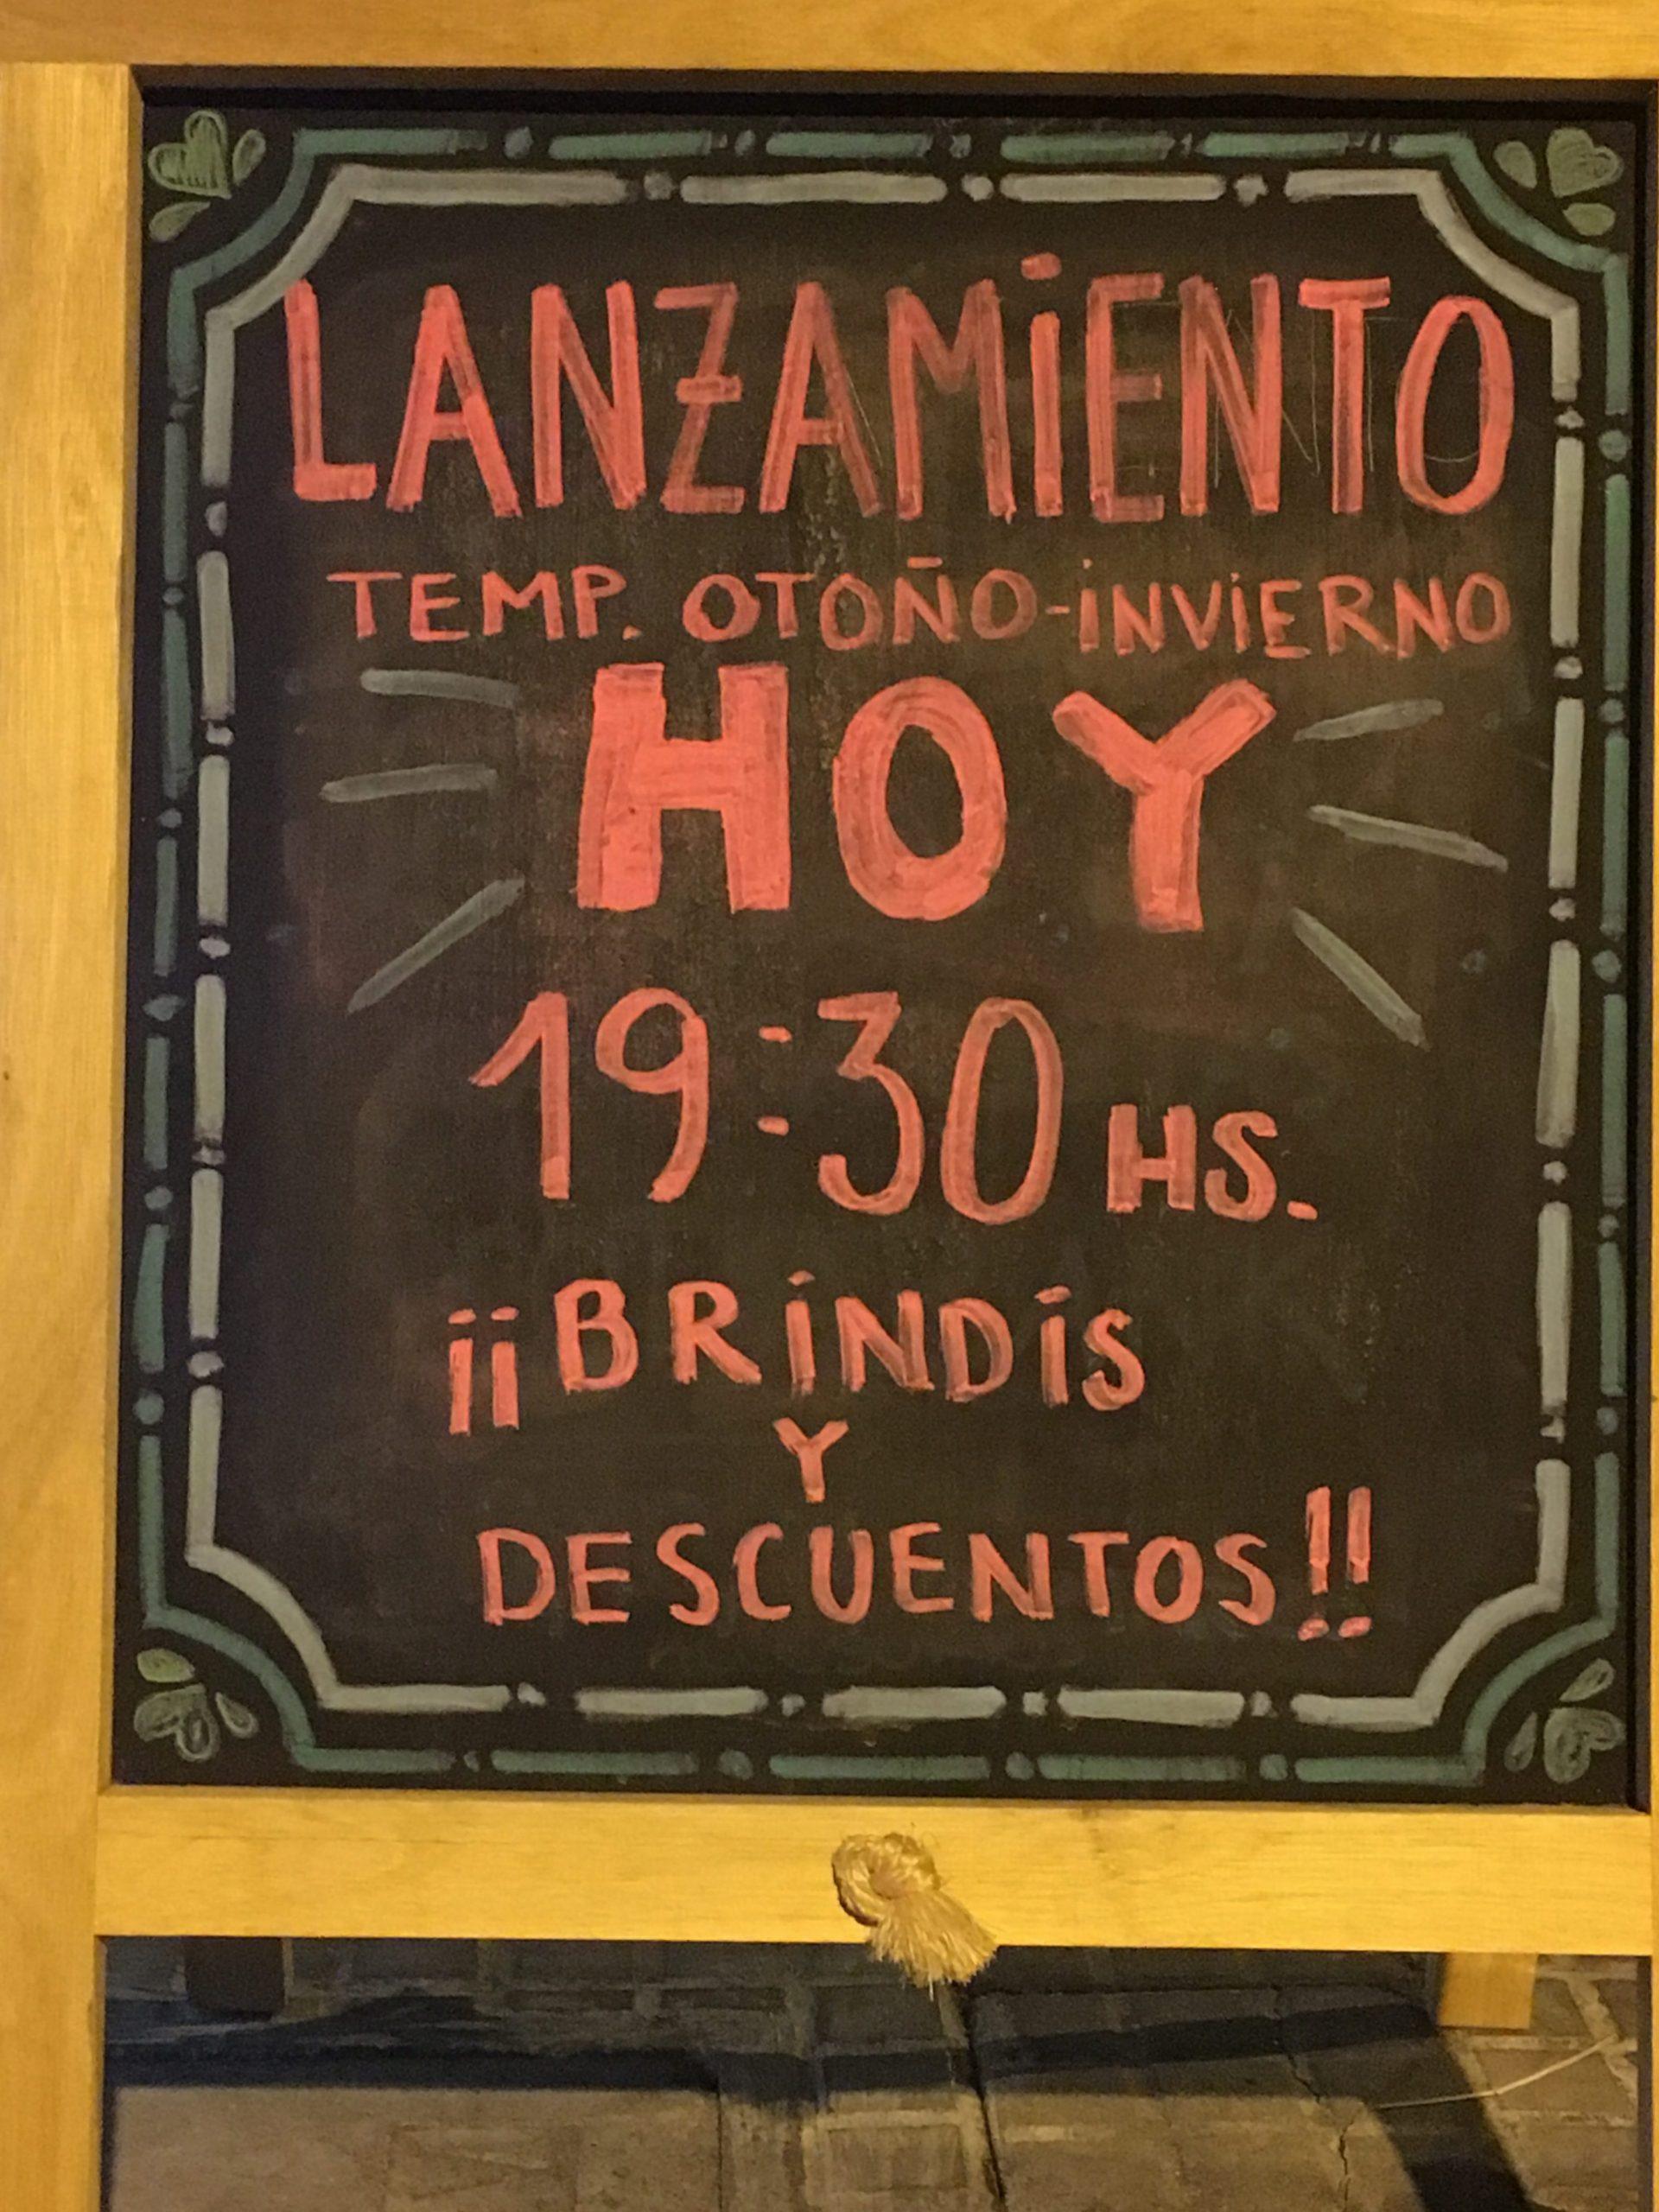 LANZAMIENTO
TEMP. OTOÑO-INVIERNO
HOY
19:30 HS.
¡¡BRINDIS
Y
DESCUENTOS!!